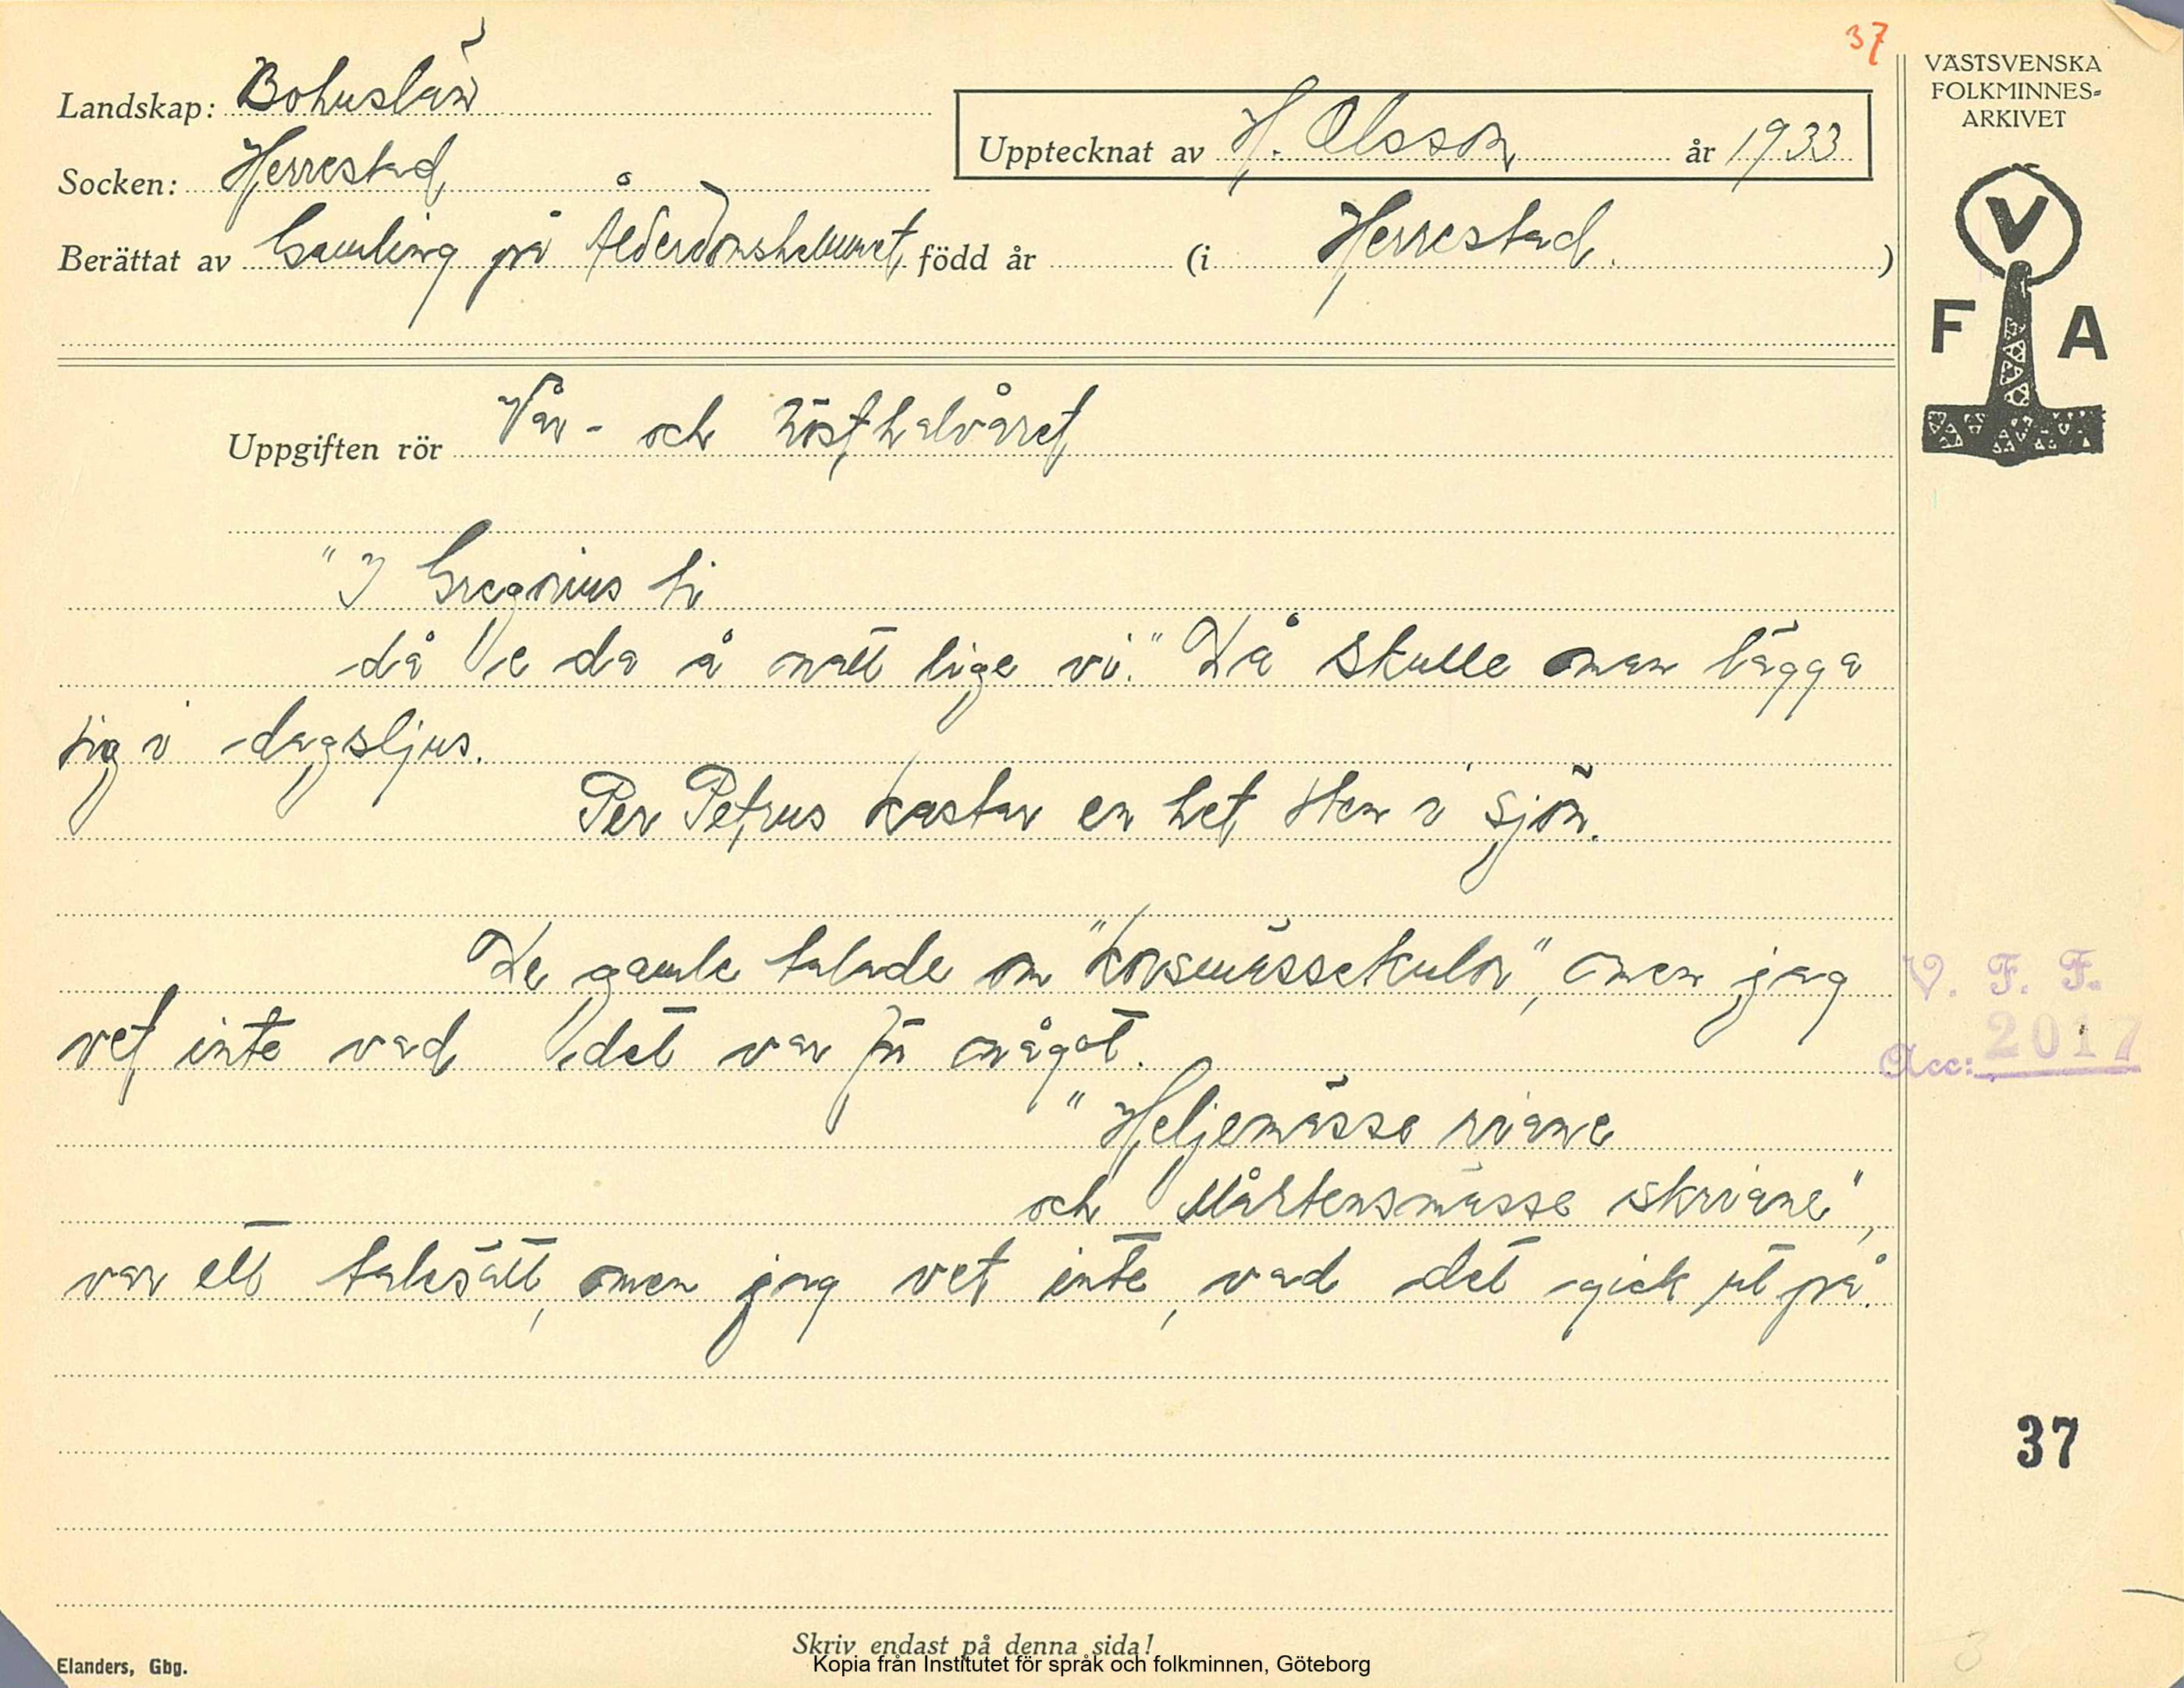 37
VÄSTSVENSKA
FOLKMINNES-
ARKIVET
Landskap: Bohuslän
Upptecknat av H. Olsson år 1933
Socken: Herrestad
Berättat av Gamling på Ålderdomshemmet, född år (i Herrestad.)
V
F A
Uppgiften rör Vår- och hösthalvåret
"I Gregorius ti
då e da å natt lige vi." Då skulle man lägga
sig i dagsljus.
Per Petrus kastar en het sten i sjön.
De gamle talade om "korsmässekulor", men jag
vet inte vad det var för något.
V. F. F.
Acc: 2017
"Heljemässe riane
och Mårtensmässe skriane",
var ett talesätt, men jag vet inte, vad det gick ut på.
37
3
Skriv endast på denna sida!
Elanders, Gbg.
Kopia från Institutet för språk och folkminnen, Göteborg